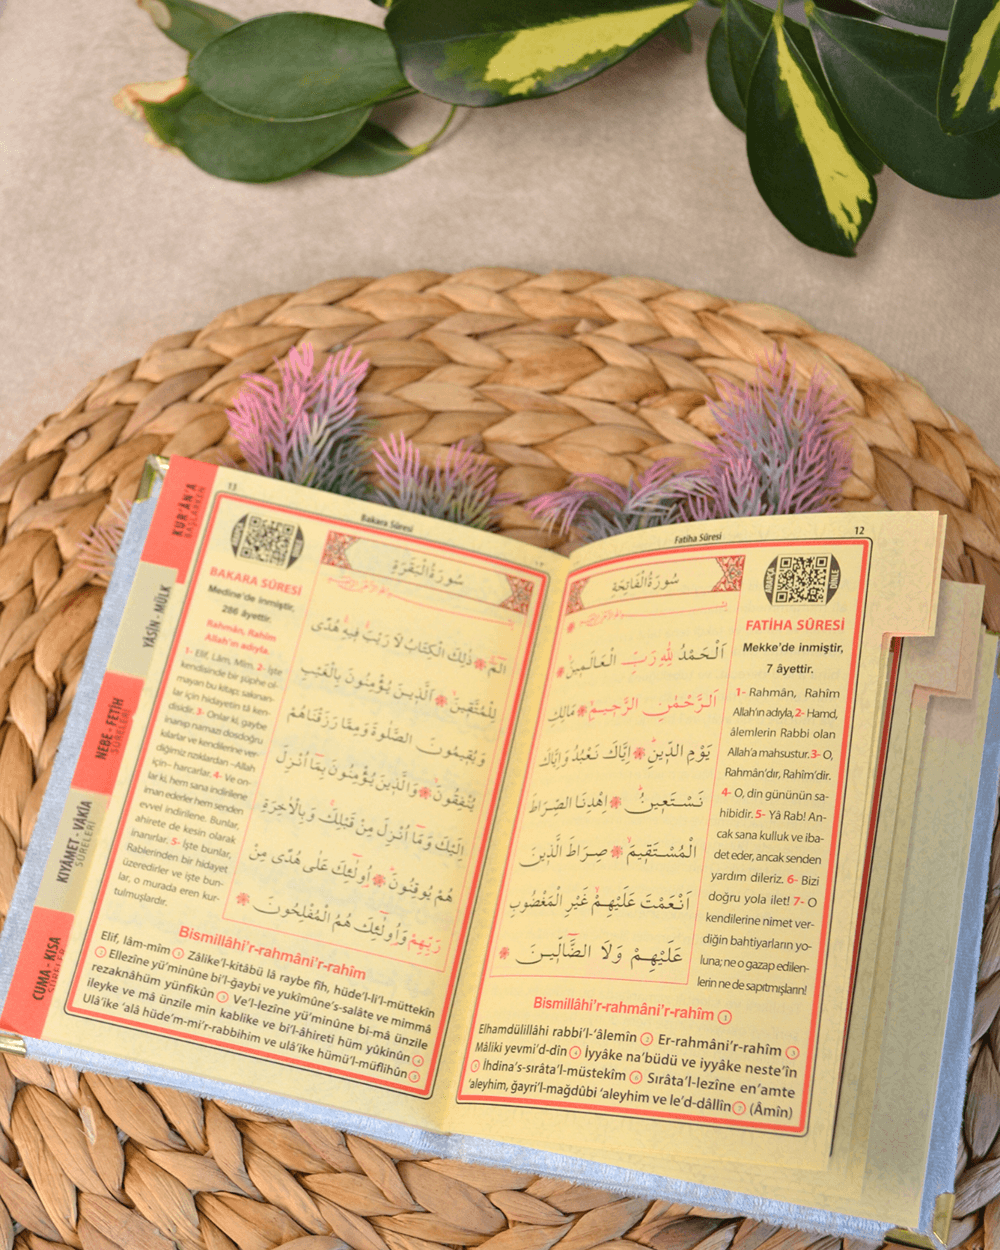 KUR'ÂN'A
BAŞLARKEN
YÂSİN - MÜLK
NEBE - FETİH
SÛRELERİ
KIYÂMET - VÂKIA
SÛRELERİ
CUMA - KISA
SÛRELER
13
Bakara Sûresi
DİNLE
BAKARA SÛRESİ
Medine'de inmiştir,
286 âyettir.
Rahmân, Rahîm
Allah'ın adıyla.
1- Elif, Lâm, Mîm. 2- İşte
kendisinde bir şüphe ol-
mayan bu kitap; sakınan-
lar için hidayetin tâ ken-
disidir. 3- Onlar ki, gaybe
inanıp namazı dosdoğru
kılarlar ve kendilerine ver-
diğimiz rızıklardan –Allah
için– harcarlar. 4- Ve on-
lar ki, hem sana indirilene
iman ederler hem senden
evvel indirilene. Bunlar,
ahirete de kesin olarak
inanırlar. 5- İşte bunlar,
Rablerinden bir hidayet
üzeredirler ve işte bun-
lar, o murada eren kur-
tulmuşlardır.
سُورَةُ الْبَقَرَةِ
الٓمٓ ذٰلِكَ الْكِتَابُ لَا رَيْبَ فِيهِ هُدًى
لِلْمُتَّقِينَ اَلَّذِينَ يُؤْمِنُونَ بِالْغَيْبِ
وَيُقِيمُونَ الصَّلٰوةَ وَمِمَّا رَزَقْنَاهُمْ
يُنْفِقُونَ وَالَّذِينَ يُؤْمِنُونَ بِمَٓا اُنْزِلَ
اِلَيْكَ وَمَٓا اُنْزِلَ مِنْ قَبْلِكَ وَبِالْاٰخِرَةِ
هُمْ يُوقِنُونَ اُولٰٓئِكَ عَلٰى هُدًى مِنْ
رَبِّهِمْ وَاُولٰٓئِكَ هُمُ الْمُفْلِحُونَ
Bismillâhi'r-rahmâni'r-rahîm
Elif, lâm-mîm 1 Zâlike'l-kitâbü lâ raybe fîh, hüde'l-li'l-müttekîn
2 Ellezîne yü'minûne bi'l-ğaybi ve yukîmûne's-salâte ve mimmâ
rezaknâhüm yünfikûn 3 Ve'l-lezîne yü'minûne bi-mâ ünzile
ileyke ve mâ ünzile min kablike ve bi'l-âhireti hüm yûkinûn 4
Ulâ'ike 'alâ hüde'm-mi'r-rabbihim ve ulâ'ike hümü'l-müflihûn 5
12
Fatiha Sûresi
ARAPÇA
DİNLE
FATİHA SÛRESİ
Mekke'de inmiştir,
7 âyettir.
1- Rahmân, Rahîm
Allah'ın adıyla, 2- Hamd,
âlemlerin Rabbi olan
Allah'a mahsustur. 3- O,
Rahmân'dır, Rahîm'dir.
4- O, din gününün sa-
hibidir. 5- Yâ Rab! An-
cak sana kulluk ve iba-
det eder, ancak senden
yardım dileriz. 6- Bizi
doğru yola ilet! 7- O
kendilerine nimet ver-
diğin bahtiyarların yo-
luna; ne o gazap edilen-
lerin ne de sapıtmışların!
سُورَةُ الْفَاتِحَةِ
اَلْحَمْدُ لِلّٰهِ رَبِّ الْعَالَمِينَ
اَلرَّحْمٰنِ الرَّحِيمِ مَالِكِ
يَوْمِ الدِّينِ اِيَّاكَ نَعْبُدُ وَاِيَّاكَ
نَسْتَعِينُ اِهْدِنَا الصِّرَاطَ
الْمُسْتَقِيمَ صِرَاطَ الَّذِينَ
اَنْعَمْتَ عَلَيْهِمْ غَيْرِ الْمَغْضُوبِ
عَلَيْهِمْ وَلَا الضَّٓالِّينَ
Bismillâhi'r-rahmâni'r-rahîm 1
Elhamdülillâhi rabbi'l-'âlemîn 2 Er-rahmâni'r-rahîm 3
Mâliki yevmi'd-dîn 4 İyyâke na'büdü ve iyyâke neste'în
5 İhdina's-sırâta'l-müstekîm 6 Sırâta'l-lezîne en'amte
'aleyhim, ğayri'l-mağdûbi 'aleyhim ve le'd-dâllîn 7 (Âmîn)